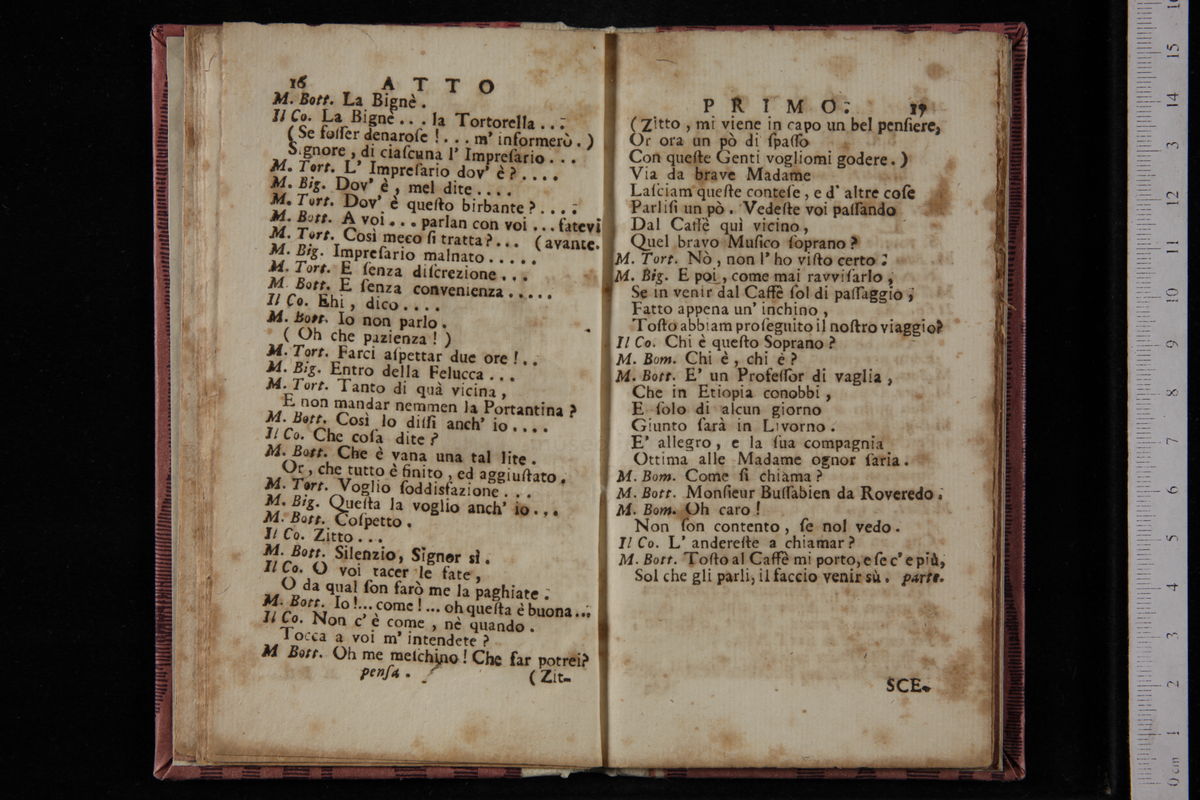 16 ATTO
M. Bott. La Bignè.
Il Co. La Bignè... la Tortorella...
(Se foſſer denaroſe!... m' informerò.)
Signore, di ciaſcuna l' Impreſario...
M. Tort. L' Impreſario dov' è?....
M. Big. Dov' è, mel dite....
M. Tort. Dov' è queſto birbante?....
M. Bott. A voi... parlan con voi... fatevi
M. Tort. Così meco ſi tratta?... (avante.
M. Big. Impreſario malnato.....
M. Tort. E ſenza diſcrezione...
M. Bott. E ſenza convenienza.....
Il Co. Ehi, dico....
M. Bott. Io non parlo.
(Oh che pazienza!)
M. Tort. Farci aſpettar due ore!..
M. Big. Entro della Felucca...
M. Tort. Tanto di quà vicina,
E non mandar nemmen la Portantina?
M. Bott. Così lo diſſi anch' io....
Il Co. Che coſa dite?
M. Bott. Che è vana una tal lite.
Or, che tutto è finito, ed aggiuſtato.
M. Tort. Voglio ſoddisfazione...
M. Big. Queſta la voglio anch' io...
M. Bott. Coſpetto.
Il Co. Zitto...
M. Bott. Silenzio, Signor sì.
Il Co. O voi tacer le fate,
O da qual ſon farò me la paghiate.
M. Bott. Io!... come!... oh queſta è buona...
Il Co. Non c' è come, nè quando.
Tocca a voi m' intendete?
M Bott. Oh me meſchino! Che far potrei?
penſa. (Zit-
PRIMO. 17
(Zitto, mi viene in capo un bel penſiere,
Or ora un pò di ſpaſſo
Con queſte Genti vogliomi godere.)
Via da brave Madame
Laſciam queſte conteſe, e d' altre coſe
Parliſi un pò. Vedeſte voi paſſando
Dal Caffè quì vicino,
Quel bravo Muſico ſoprano?
M. Tort. Nò, non l' ho viſto certo.
M. Big. E poi, come mai ravviſarlo,
Se in venir dal Caffè ſol di paſſaggio,
Fatto appena un' inchino,
Toſto abbiam proſeguito il noſtro viaggio?
Il Co. Chi è queſto Soprano?
M. Bom. Chi è, chi è?
M. Bott. E' un Profeſſor di vaglia,
Che in Etiopia conobbi,
E ſolo di alcun giorno
Giunto ſarà in Livorno.
E' allegro, e la ſua compagnia
Ottima alle Madame ognor ſaria.
M. Bom. Come ſi chiama?
M. Bott. Monſieur Buſſabien da Roveredo.
M. Bom. Oh caro!
Non ſon contento, ſe nol vedo.
Il Co. L' andereſte a chiamar?
M. Bott. Toſto al Caffè mi porto, e ſe c' e più,
Sol che gli parli, il faccio venir sù. parte.
SCE-
0 cm 1 2 3 4 5 6 7 8 9 10 11 12 13 14 15 16